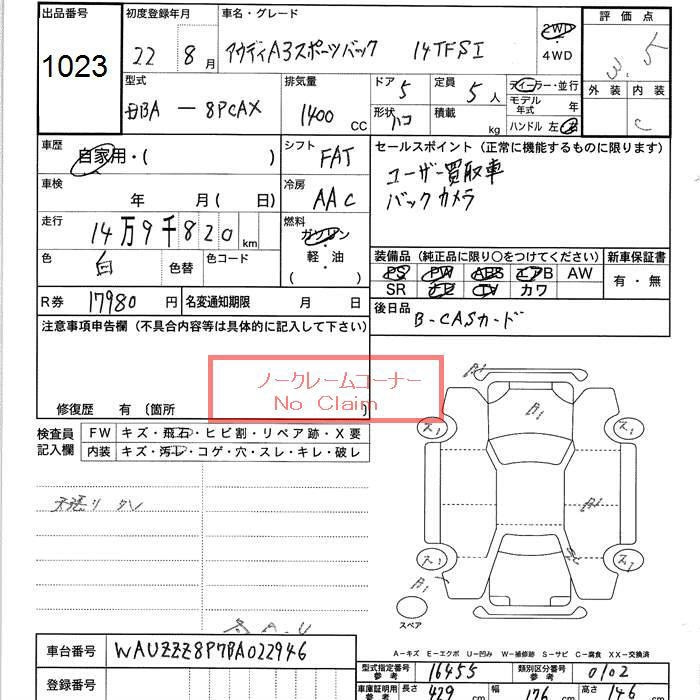 出品番号
1023
初度登録年月
22 8月
車名・グレード
アウディA3スポーツバック 14TFSI
2WD
・
4WD
評価点
3.5
外装 内装
C
型式
DBA — 8PCAX
排気量
1400 CC
ドア 5
形状 ハコ
定員 5人
積載 kg
ディーラー・並行
モデル年式 年
ハンドル 左・右
車歴
自家用・( )
シフト
FAT
セールスポイント（正常に機能するものに限ります）
ユーザー買取車
バックカメラ
車検
年 月( 日)
冷房
AAC
走行
14万9千820km
燃料
ガソリン
・
軽・油
( )
色
白
色替
色コード
装備品（純正品に限り〇をつけてください）
PS PW ABS エアB AW
SR ナビ TV カワ
新車保証書
有・無
R券 17980円
名変通知期限 月 日
後日品
B-CASカード
注意事項申告欄（不具合内容等は具体的に記入して下さい）
ノークレームコーナー
No Claim
修復歴 有〔箇所 〕
検査員
記入欄
FW キズ・飛石・ヒビ割・リペア跡・X要
内装 キズ・汚レ・コゲ・穴・スレ・キレ・破レ
天張り タレ
A1
スペア
A-キズ E-エクボ U-凹み W-補修跡 S-サビ C-腐食 XX-交換済
車台番号 WAUZZZ8P7BA022946
登録番号
型式指定番号 参考 16455
類別区分番号 参考 0102
車庫証明用 参考 長さ 429 cm 幅 176 cm 高さ 146 cm